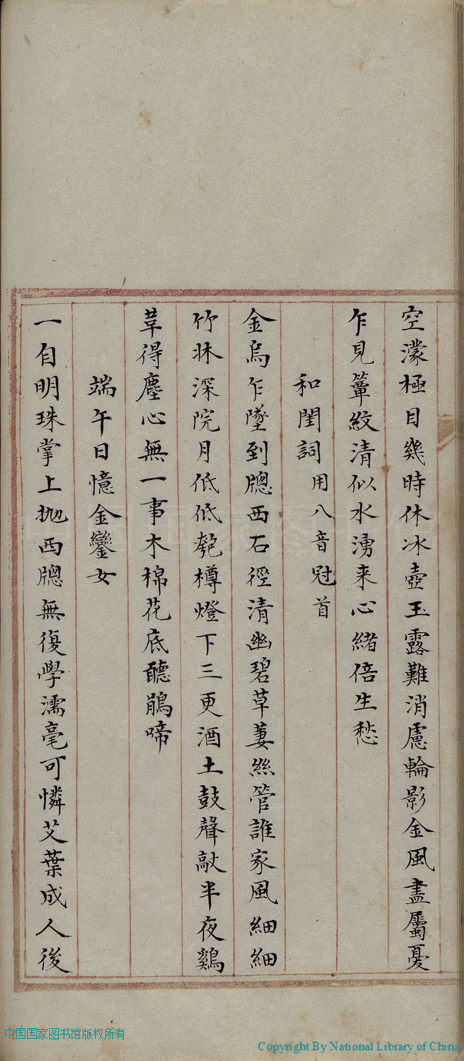 空濛極目幾時休冰壺玉露難消慮輪影金風盡屬憂
乍見簟紋清似水湧来心緒倍生愁
和閨詞用八音冠首
金烏乍墜到牕西石徑清幽碧草萋絲管誰家風細細
竹牀深院月低低匏樽燈下三更酒土鼓聲敲半夜鷄
革得塵心無一事木棉花底聽鵑啼
端午日憶金鑾女
一自明珠掌上抛西牕無復學濡毫可憐艾葉成人後
中国国家图书馆版权所有
Copyright By National Library of China